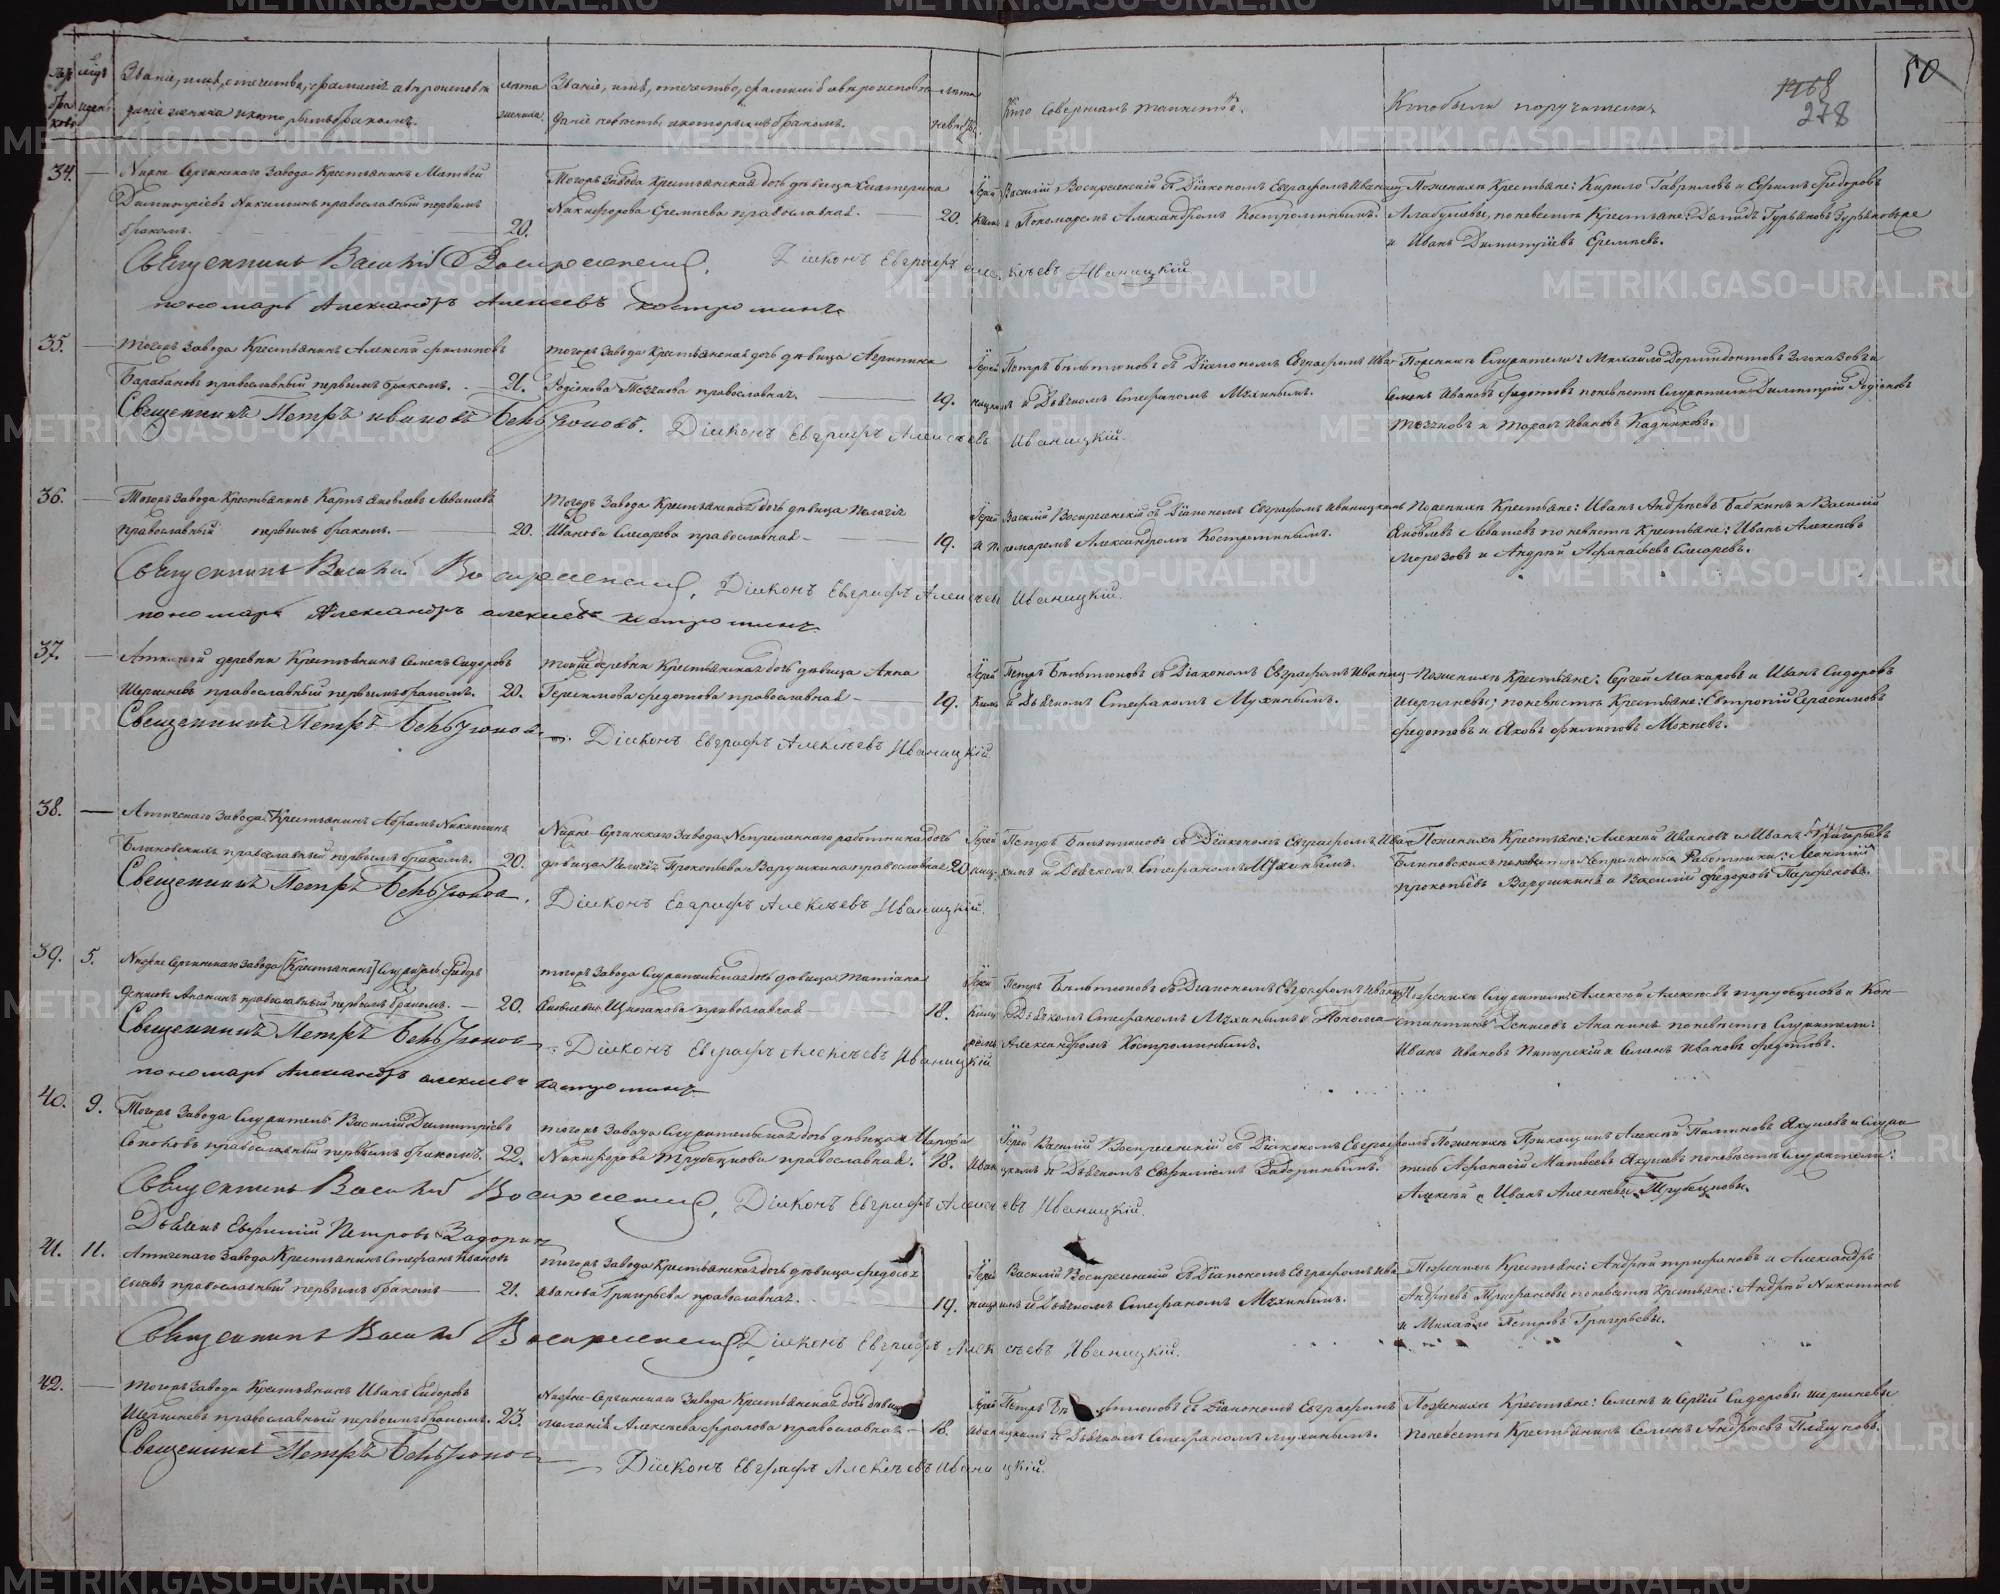 Званіе, имя, отечество, фамилія и вѣроисповѣ
даніе жениха и которымъ бракомъ.
лѣта
жениха.
Званіе, имя, отечество, фамилія и вѣроисповѣ
даніе невѣсты и которымъ бракомъ.
лѣта
невѣсты.
Кто совершалъ таинство.
Кто были поручители.
278
50
34.
Нижне Сергинскаго Завода Крестьянинъ Матвей
Димитріевъ Никитинъ православный первымъ
бракомъ.
20.
Тогожъ Завода Крестьянская дочь дѣвица Екатерина
Никифорова Еремѣева православная.
20.
Іерей Василій Воскресенскій съ Діакономъ Евграфомъ Иваниц
кимъ и Пономаремъ Александромъ Костроминымъ.
По женихѣ Крестьяне: Кирило Гавриловъ и Ефимъ Федоровъ
по невѣстѣ Крестьяне: Демидъ Гурьяновъ
и Иванъ Димитріевъ Еремѣевъ.
Священникъ Василій Воскресенскій. Діаконъ Евграфъ Алексѣевъ Иваницкій
пономарь Александръ Алексеевъ костроминъ
35.
Тогожъ Завода Крестьянинъ Алексей Филиповъ
Барабановъ православный первымъ бракомъ.
21.
тогожъ Завода Крестьянская дочь дѣвица Агрипина
Родіонова православная.
19.
Іерей Петръ Бѣльтюковъ съ Діакономъ Евграфомъ Ива
ницкимъ и Дьячкомъ Стефаномъ Мухинымъ.
По женихѣ Служители: Михайло Дормидонтовъ Злоказовъ и
Семенъ Ивановъ Федотовъ по невѣстѣ Служители Димитрій Родіоновъ
и Тарасъ Ивановъ Кадниковъ.
Священникъ Петръ ивановъ Бельтюковъ. Діаконъ Евграфъ Алексѣевъ Иваницкій.
36.
Тогожъ Завода Крестьянинъ Карпъ Яковлевъ Левашевъ
православный первымъ бракомъ.
20.
Тогожъ Завода Крестьянская дочь дѣвица Пелагія
Иванова Слесарева православная
19.
Іерей Василій Воскресенскій съ Діакономъ Евграфомъ Иваницкимъ
и пономаремъ Александромъ Костроминымъ.
По женихѣ Крестьяне: Иванъ Андреевъ Бабкинъ и Василій
Яковлевъ Левашевъ по невѣстѣ Крестьяне: Иванъ Алексеевъ
Морозовъ и Андрей Афанасьевъ Слесаревъ.
Священникъ Василій Воскресенскій. Діаконъ Евграфъ Алексѣевъ Иваницкій.
пономарь Александръ алексеевъ костроминъ
37.
Атигской деревни Крестьянинъ Семенъ Сидоровъ
Шершневъ православный первымъ бракомъ.
20.
той же деревни Крестьянская дочь дѣвица Анна
Герасимова Федотова православная
19.
Іерей Петръ Бѣльтюковъ съ Діакономъ Евграфомъ Иваниц
кимъ и Дьячкомъ Стефаномъ Мухинымъ.
По женихѣ Крестьяне: Сергей Макаровъ и Иванъ Сидоровъ
Шершневы; по невѣстѣ Крестьяне: Евтропій Герасимовъ
Федотовъ и Яковъ Филиповъ Мокѣевъ.
Священникъ Петръ Бельтюковъ Діаконъ Евграфъ Алексѣевъ Иваницкій
38.
Атигскаго Завода Крестьянинъ Абрамъ Никитинъ
Блиновскихъ православный первымъ бракомъ.
20.
Нижне-Сергинскаго Завода Непременнаго работника дочь
дѣвица Пелагія Прокопьева Варушкина православная
20
Іерей Петръ Бѣльтюковъ съ Діакономъ Евграфомъ Ива
ницкимъ и Дьячкомъ Стефаномъ Мухинымъ.
По женихѣ Крестьяне: Алексей Ивановъ и Иванъ Григорьевъ
Блиновскихъ по невѣстѣ Непременные Работники: Леонтій
Прокопьевъ Варушкинъ и Василій Федоровъ Парфеновъ.
Священникъ Петръ Бельтюковъ. Діаконъ Евграфъ Алексѣевъ Иваницкій.
39.
5.
Нижне Сергинскаго Завода [Крестьянинъ] Служитель Федоръ
Денисовъ Ананьинъ православный первымъ бракомъ.
20.
тогожъ Завода Служительская дочь дѣвица Татіана
Яковлева Щипанова православная
18.
Іерей Петръ Бѣльтюковъ съ Діакономъ Евграфомъ Иваниц
кимъ Дьячкомъ Стефаномъ Мухинымъ и Понома
ремъ Александромъ Костроминымъ.
По женихѣ Служители: Алексей Алексеевъ Трубецковъ и Кон
стантинъ Денисовъ Ананьинъ по невѣстѣ Служители:
Иванъ Ивановъ и Семенъ Ивановъ Федотовъ.
Священникъ Петръ Бельтюковъ Діаконъ Евграфъ Алексѣевъ Иваницкій
пономарь Александръ алексеевъ костроминъ
40.
9.
Тогожъ Завода Служитель Василій Димитріевъ
Соколовъ православный первымъ бракомъ.
22.
тогожъ Завода Служительская дочь дѣвица
Никифорова Трубецкова православная.
18.
Іерей Василій Воскресенскій съ Діакономъ Евграфомъ
Иваницкимъ и Дьячкомъ Евфиміемъ Задоринымъ.
По женихѣ Прикащикъ Алексей Якушевъ и Служи
тель Афанасій Матвеевъ Якушевъ по невѣстѣ Служители:
Алексей и Иванъ Алексеевы Трубецковы.
Священникъ Василій Воскресенскій, Діаконъ Евграфъ Алексѣевъ Иваницкій.
Дьячекъ Евфимій Петровъ Задоринъ
41.
11.
Атигскаго Завода Крестьянинъ Стефанъ Ивановъ
православный первымъ бракомъ
21.
тогожъ Завода Крестьянская дочь дѣвица Федосья
Иванова Григорьева православная.
19.
Іерей Василій Воскресенскій съ Діакономъ Евграфомъ Ива
ницкимъ и Дьячкомъ Стефаномъ Мухинымъ.
По женихѣ Крестьяне: Андрей Трифановъ и Александръ
Андреевъ Трифановы по невѣстѣ Крестьяне: Андрей Никитинъ
и Михайло Петровъ Григорьевы.
Священникъ Василій Воскресенскій Діаконъ Евграфъ Алексѣевъ Иваницкій.
42.
тогожъ Завода Крестьянинъ Иванъ Сидоровъ
Шершневъ православный первымъ бракомъ.
23.
Нижне-Сергинскаго Завода Крестьянская дочь дѣвица
Меланія Алексеева Фролова православная
18.
Іерей Петръ Бѣльтюковъ съ Діакономъ Евграфомъ
Иваницкимъ и Дьячкомъ Стефаномъ Мухинымъ.
По женихѣ Крестьяне: Семенъ и Сергей Сидоровы Шершневы
по невѣстѣ Крестьянинъ Семенъ Андреевъ Плѣшковъ.
Священникъ Петръ Бельтюковъ Діаконъ Евграфъ Алексѣевъ Иваницкій.
METRIKI.GASO-URAL.RU